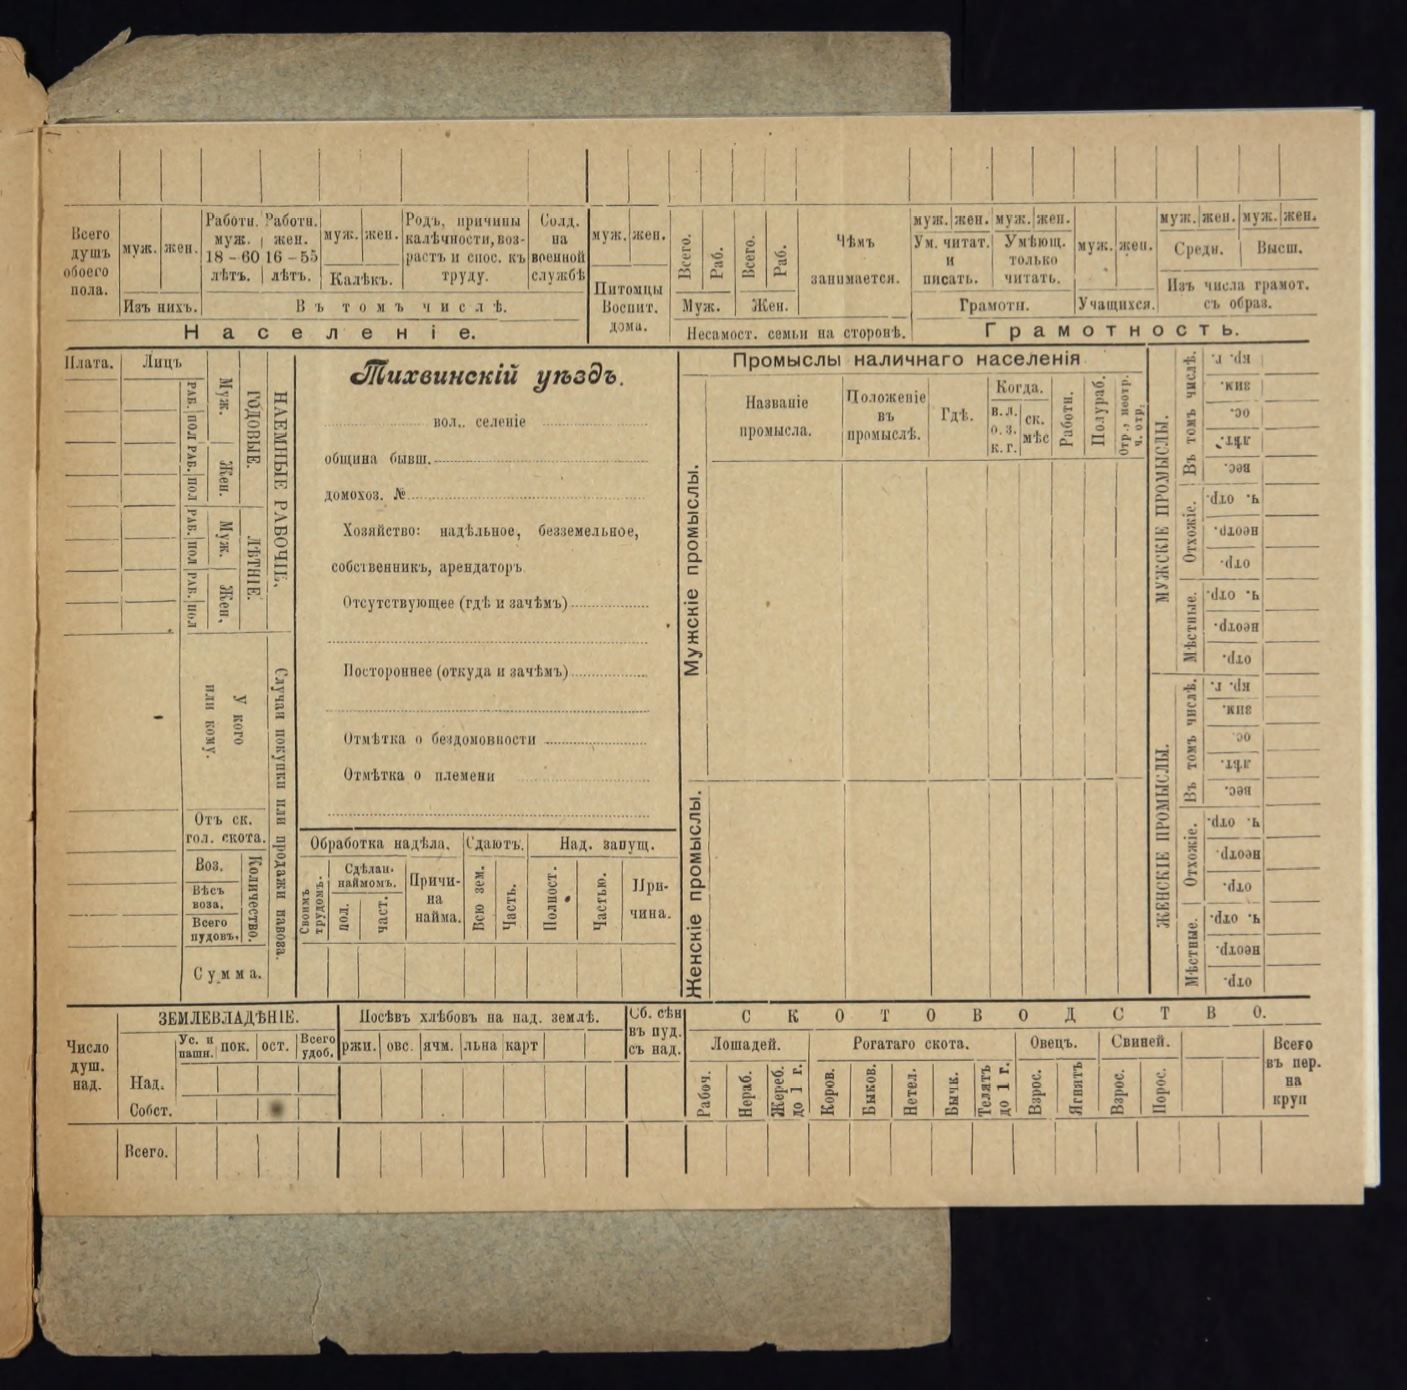 Всего душъ обоего пола.
муж. жен.
Изъ нихъ.
Работн. муж. 18 – 60 лѣтъ.
Работн. жен. 16 – 55 лѣтъ.
муж. жен.
Калѣкъ.
Родъ, причины
калѣчности, воз-
растъ и спос. къ
труду.
Солд. на военной службѣ
Въ томъ числѣ.
Населеніе.
муж. жен.
Питомцы
Воспит.
дома.
Всего. Раб. Всего. Раб.
Муж. Жен.
Чѣмъ
занимается.
Несамост. семьи на сторонѣ.
муж. жен. муж. жен.
Ум. читат. и писать.
Умѣющ. только читать.
Грамотн.
муж. жен.
Учащихся.
муж. жен. муж. жен.
Средн. Высш.
Изъ числа грамот.
съ образ.
Грамотность.
Плата. Лицъ
РАБ. ПОЛ РАБ. ПОЛ РАБ. ПОЛ РАБ. ПОЛ
Муж. Жен. Муж. Жен.
ГОДОВЫЕ. ЛѢТНІЕ.
НАЕМНЫЕ РАБОЧІЕ.
У кого
или кому.
Отъ ск.
гол. скота.
Воз.
Вѣсъ
воза.
Всего
пудовъ.
Количество.
Сумма.
Случаи покупки или продажи навоза.
Тихвинскій уѣздъ.
вол.. селеніе
община бывш.
домохоз. №
Хозяйство: надѣльное, безземельное,
собственникъ, арендаторъ
Отсутствующее (гдѣ и зачѣмъ)
Постороннее (откуда и зачѣмъ)
Отмѣтка о бездомовности
Отмѣтка о племени
Обработка надѣла. Сдаютъ. Над. запущ.
Своимъ трудомъ.
Сдѣлан- наймомъ.
пол. част.
Причи-
на
найма.
Всю зем. Часть.
Полност. Частью.
При-
чина.
Промыслы наличнаго населенія
Названіе
промысла.
Положеніе
въ
промыслѣ.
Гдѣ.
Когда.
в. л. о. з. к. г.
ск. мѣс
Работн. Полураб. Отр., неотр. ч. отр.
Мужскіе промыслы.
Женскіе промыслы.
МУЖСКІЕ ПРОМЫСЛЫ.
Въ томъ числѣ. Отхожіе. Мѣстные.
кр. г.
зик.
ос.
лѣт.
вес.
ч. отр.
неотр.
отр.
ч. отр.
неотр.
отр.
ЖЕНСКІЕ ПРОМЫСЛЫ.
Въ томъ числѣ. Отхожіе. Мѣстные.
кр. г.
зик.
ос.
лѣт.
вес.
ч. отр.
неотр.
отр.
ч. отр.
неотр.
отр.
Число
душ.
над.
ЗЕМЛЕВЛАДѢНІЕ.
Ус. и пашн. пок. ост. Всего удоб.
Над.
Собст.
Всего.
Посѣвъ хлѣбовъ на над. землѣ.
ржи. овс. ячм. льна карт
Сб. сѣн
въ пуд.
съ над.
СКОТОВОДСТВО.
Лошадей. Рогатаго скота. Овецъ. Свиней.
Рабоч. Нераб. Жереб. до 1 г. Коров. Быков. Нетел. Бычк. Телятъ до 1 г. Взрос. Ягнятъ Взрос. Порос.
Всего
въ пер.
на
круп